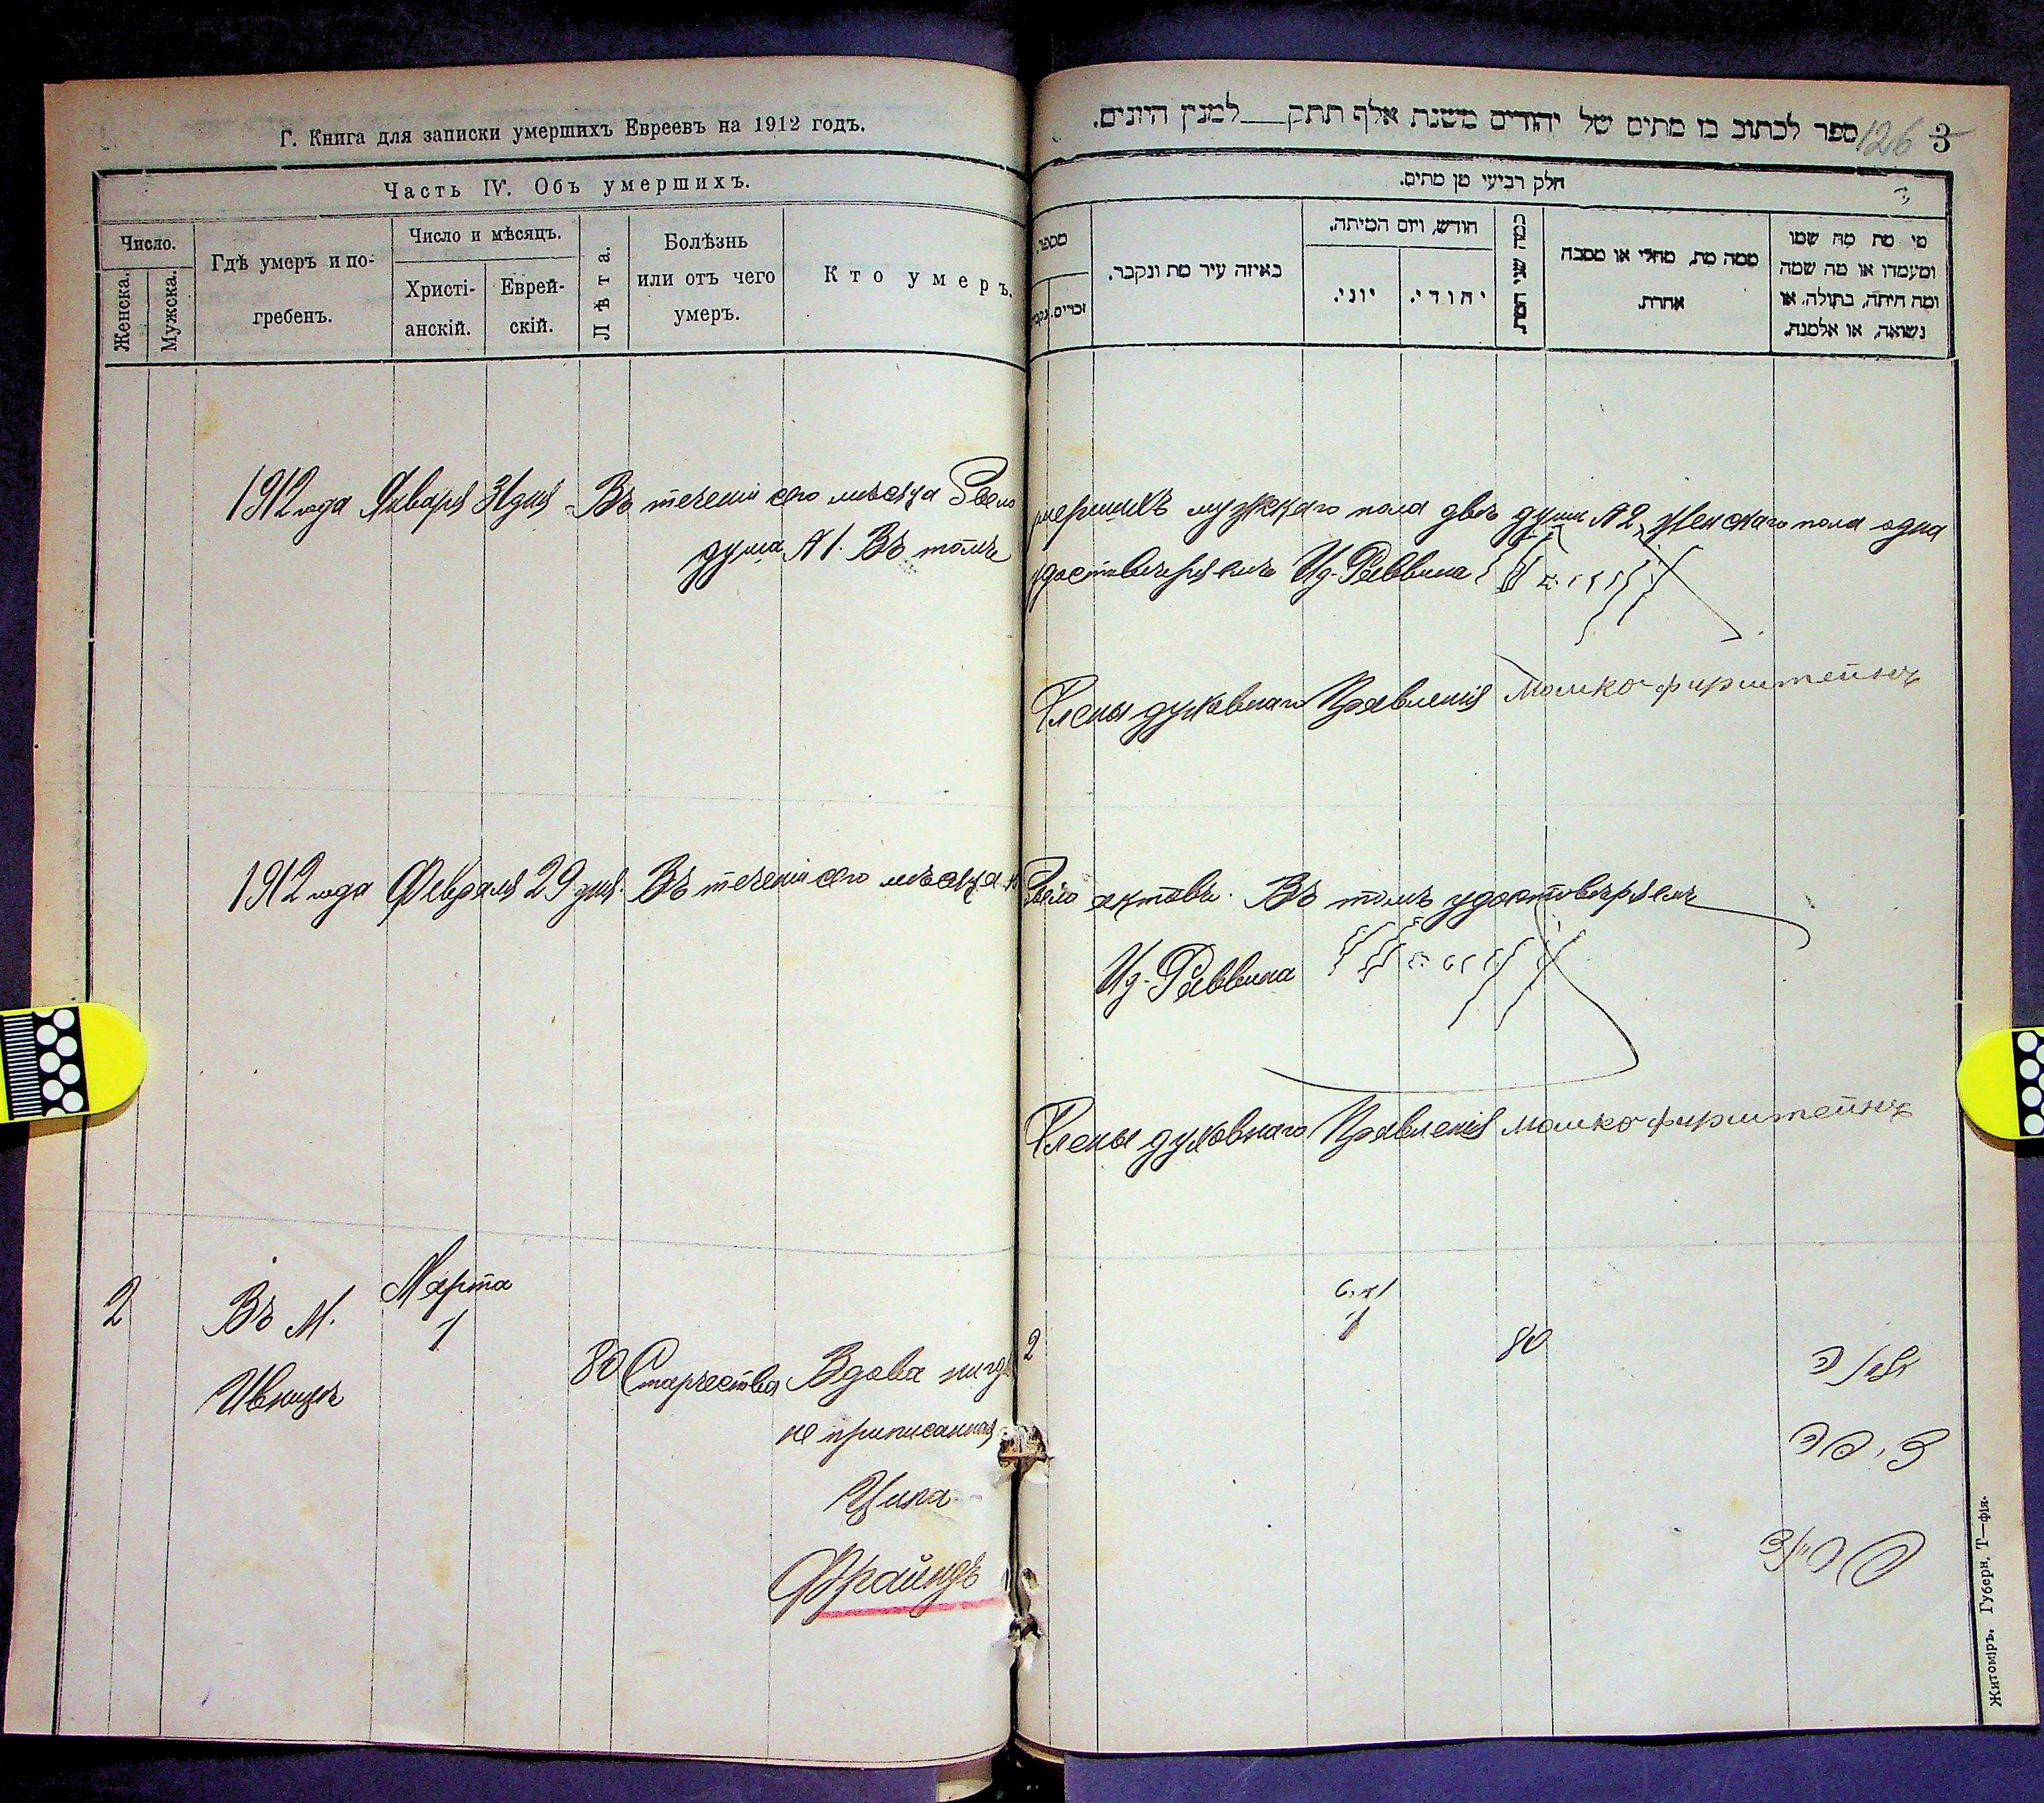 Г. Книга для записки умершихъ Евреевъ на 1912 годъ.
Часть IV. Объ умершихъ.
Число.
Женска.
Мужска.
Гдѣ умеръ и по-
гребенъ.
Число и мѣсяцъ.
Христі-
анскій.
Еврей-
скій.
Лѣта.
Болѣзнь
или отъ чего
умеръ.
Кто умеръ.
ספר לכתוב בו מתים של יהודים משנת אלף תתק__למנין היונים.
126 3
חלק רביעי מן מתים.
מספר.
זכרים.
באיזה עיר מת ונקבר.
חודש, ויום המיתה.
יוני.
יהודי.
כמה שני המת.
ממה מת, מחלי או מסבה
אחרת.
מי מת מה שמו
ומעמדו או מה שמה
ומה היתה, בתולה, או
נשואה, או אלמנה.
1912 года Января 31 дня Въ теченіи сего мѣсяца было умершихъ мужскаго пола двѣ души № 2, женскаго пола одна
душа № 1. Въ томъ удостовѣряемъ Из. Раввина
Члены духовнаго Правленія Мошко Фирштейнъ
1912 года Февраля 29 дня. Въ теченіи сего мѣсяца не было актовъ. Въ томъ удостовѣряемъ
Из. Раввина
Члены духовнаго Правленія Мошко Фирштейнъ
2
Въ М.
Ивницѣ
Марта
1
80
Старчества
Вдова нигдѣ
не приписанная
Ципа
Фрайндъ
2
1
80
Житоміръ, Губерн. Т—фія.